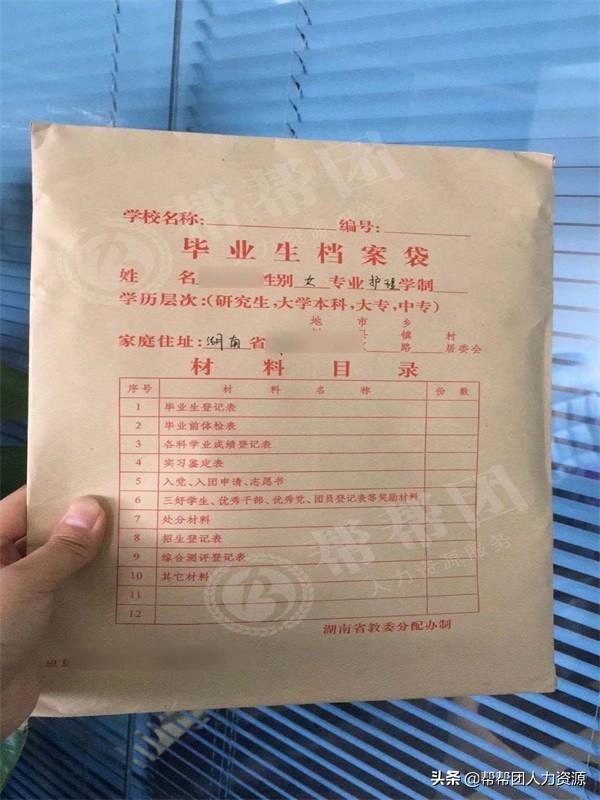 学校名称: 编号:
毕业生档案袋
姓 名 性别 女 专业 护理 学制
学历层次:(研究生,大学本科,大专,中专)
地 市 乡
镇 村
家庭住址: 湖南 省 路 居委会
材料目录
序号 材 料 名 称 份 数
1 毕业生登记表
2 毕业前体检表
3 各科学业成绩登记表
4 实习鉴定表
5 入党、入团申请、志愿书
6 三好学生、优秀干部、优秀党、团员登记表等奖励材料
7 处分材料
8 招生登记表
9 综合测评登记表
10 其它材料
11
12
湖南省教委分配办制
帮帮团
帮帮团
人力资源服务
头条 @帮帮团人力资源